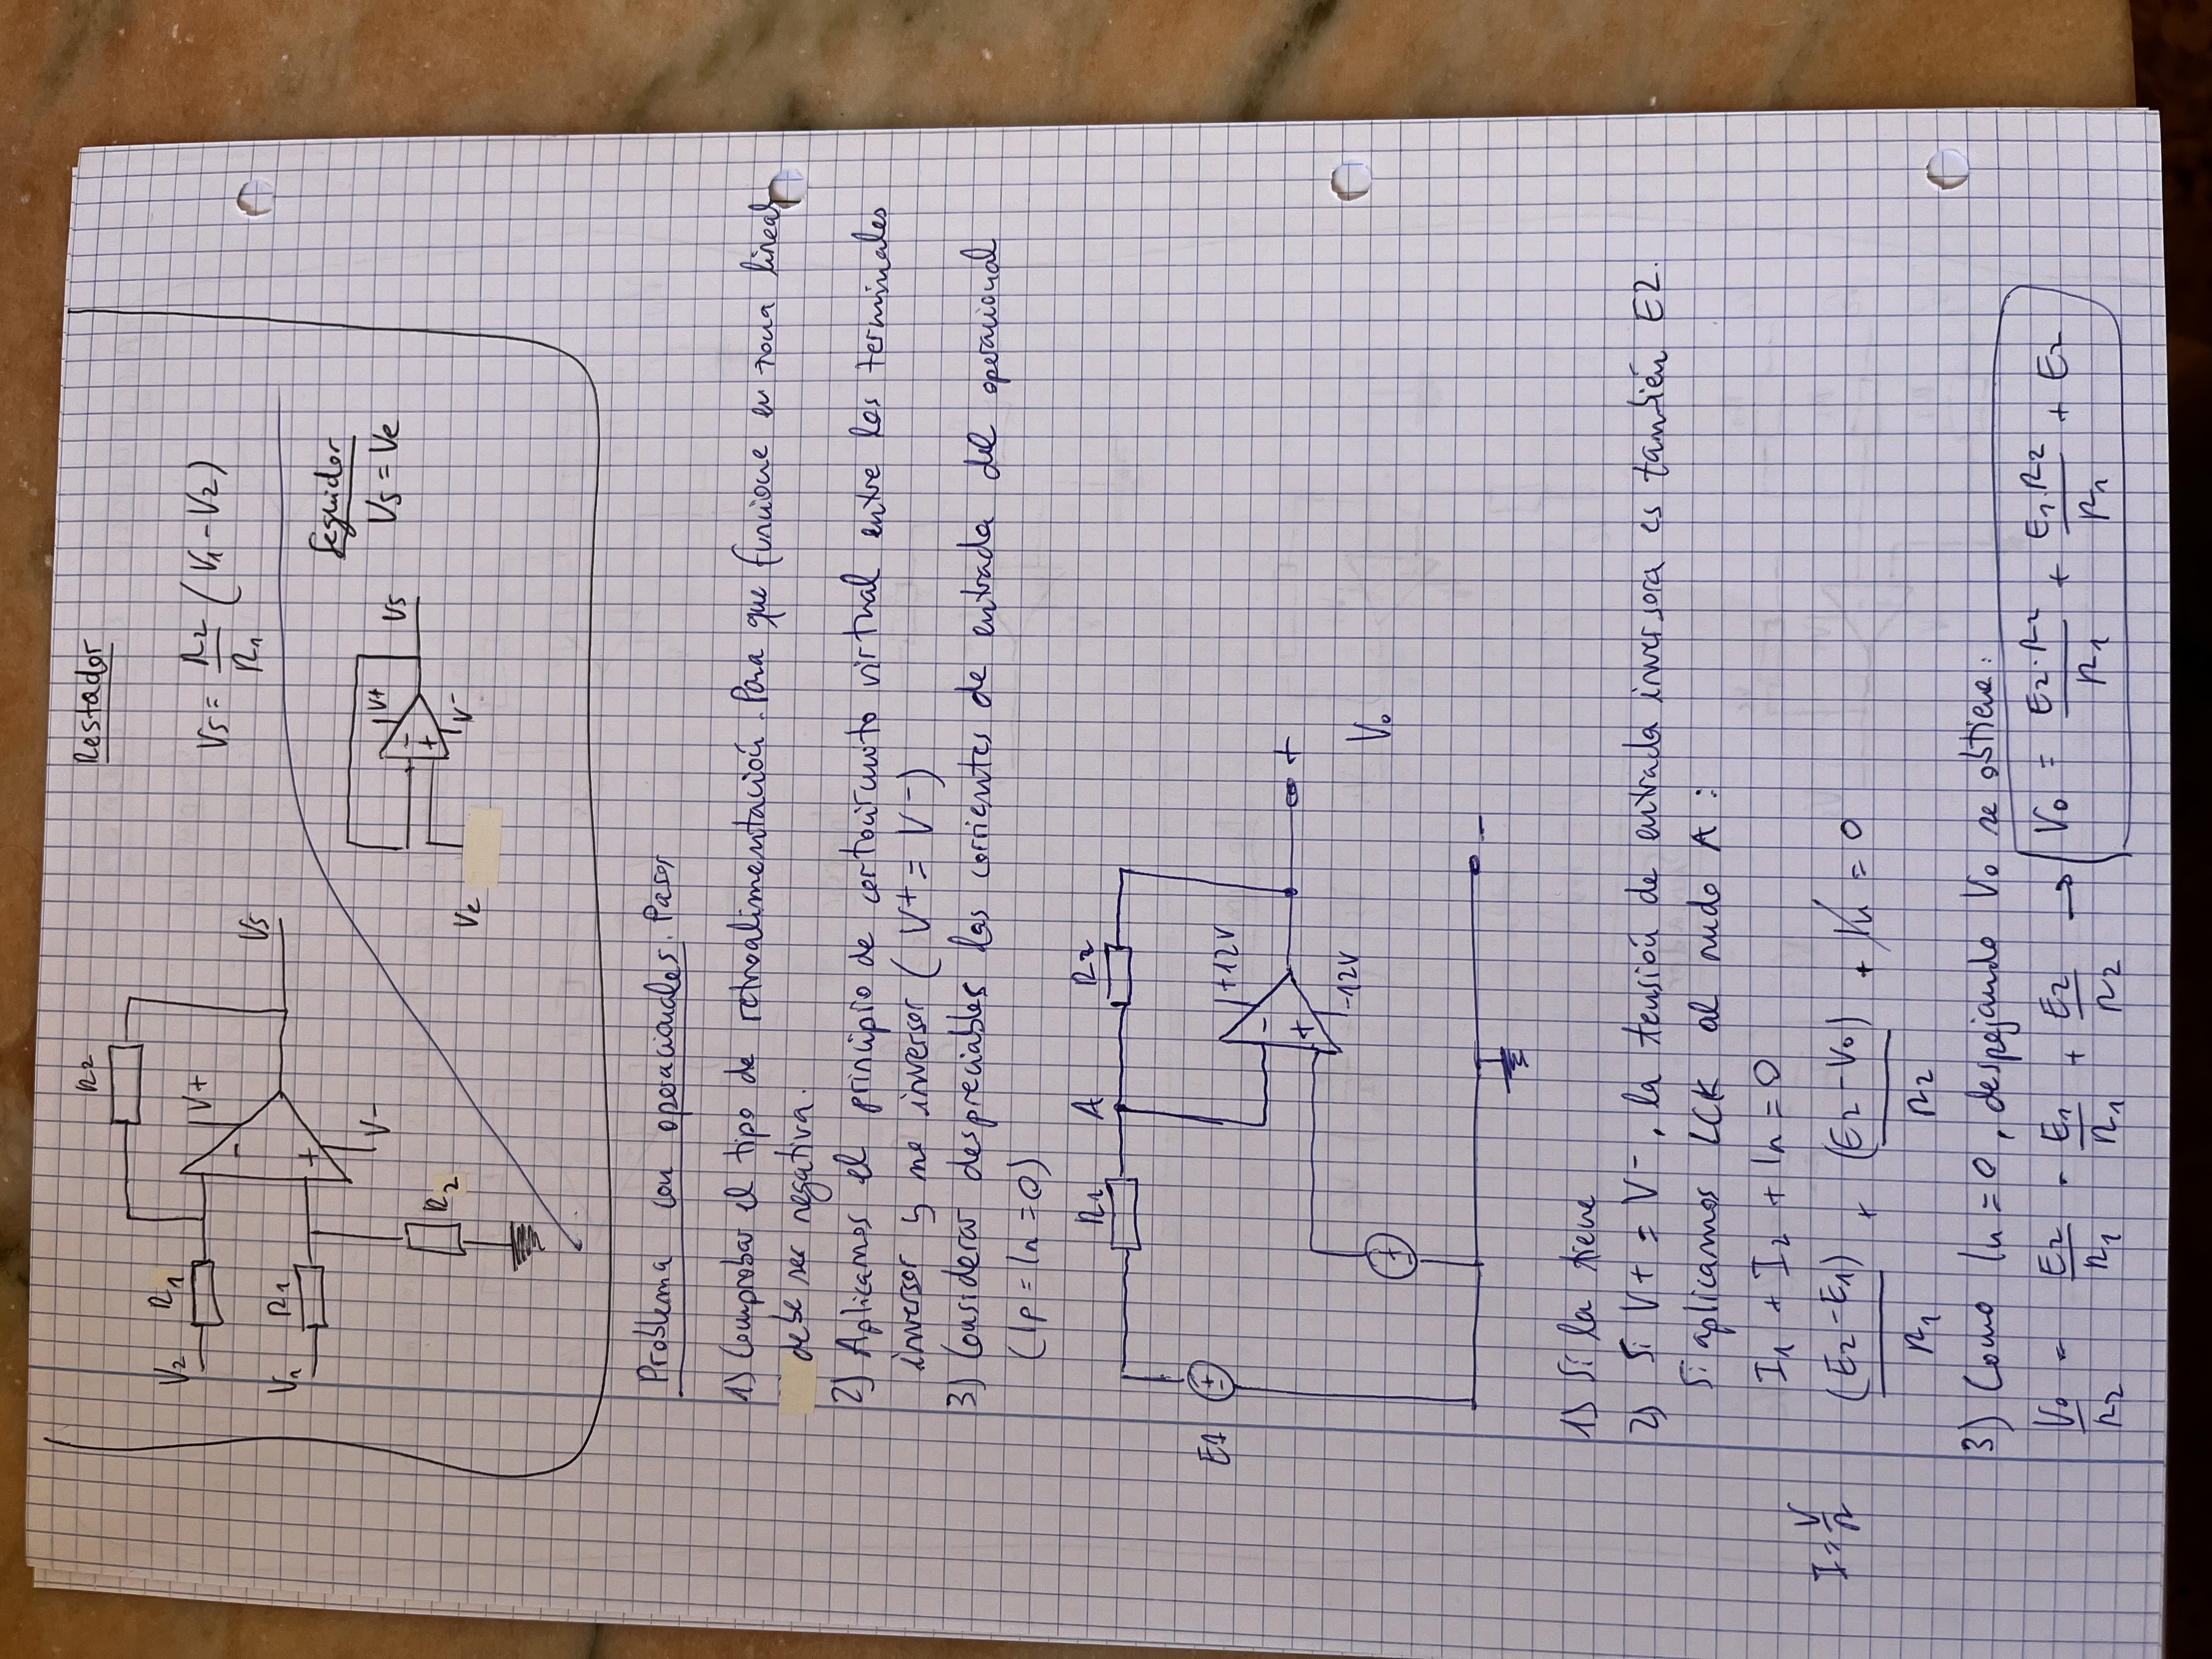 R2
Restador
V2 R1
V+
-
VS = R2/R1 (V1 - V2)
VS
V1 R1
+
V-
Seguidor
VS = Ve
V+
-
+
VS
V-
Ve
R2
Problema con operacionales. Pasos
1) Comprobar el tipo de retroalimentación. Para que funcione en zona lineal
debe ser negativa.
2) Aplicamos el principio de cortocircuito virtual entre los terminales
inversor y no inversor ( V+ = V- )
3) Considerar despreciables las corrientes de entrada del operacional
(Ip = In = 0)
R1 A R2
E1 + -
+12V
-
+
-12V
+
+ -
Vo
-
1) Si la tiene
2) Si V+ = V- , la tensión de entrada inversora es también E2.
Si aplicamos LCK al nudo A :
I1 + I2 + In = 0
I = V/R
(E2 - E1)/R1 + (E2 - Vo)/R2 + In = 0
3) Como In = 0 , despejando Vo se obtiene:
Vo/R2 = E2/R1 - E1/R1 + E2/R2 → Vo = E2·R2/R1 + E1·R2/R1 + E2